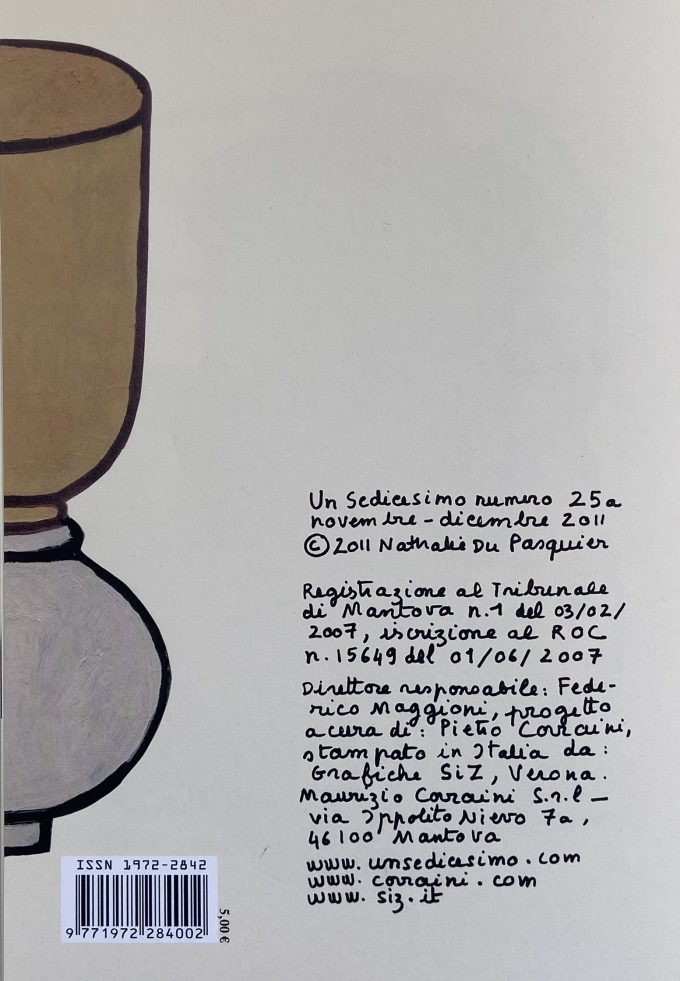 Un Sedicesimo numero 25a
novembre - dicembre 2011
© 2011 Nathalie Du Pasquier
Registrazione al Tribunale
di Mantova n.1 del 03/02/
2007, iscrizione al ROC
n.15649 del 01/06/2007
Direttore responsabile: Fede-
rico Maggioni, progetto
a cura di: Pietro Corraini,
stampato in Italia da:
Grafiche SiZ, Verona.
Maurizio Corraini S.r.l –
via Ippolito Nievo 7a,
46100 Mantova
www.unsedicesimo.com
www.corraini.com
www.siz.it
ISSN 1972-2842
9 771972 284002
5,00 €